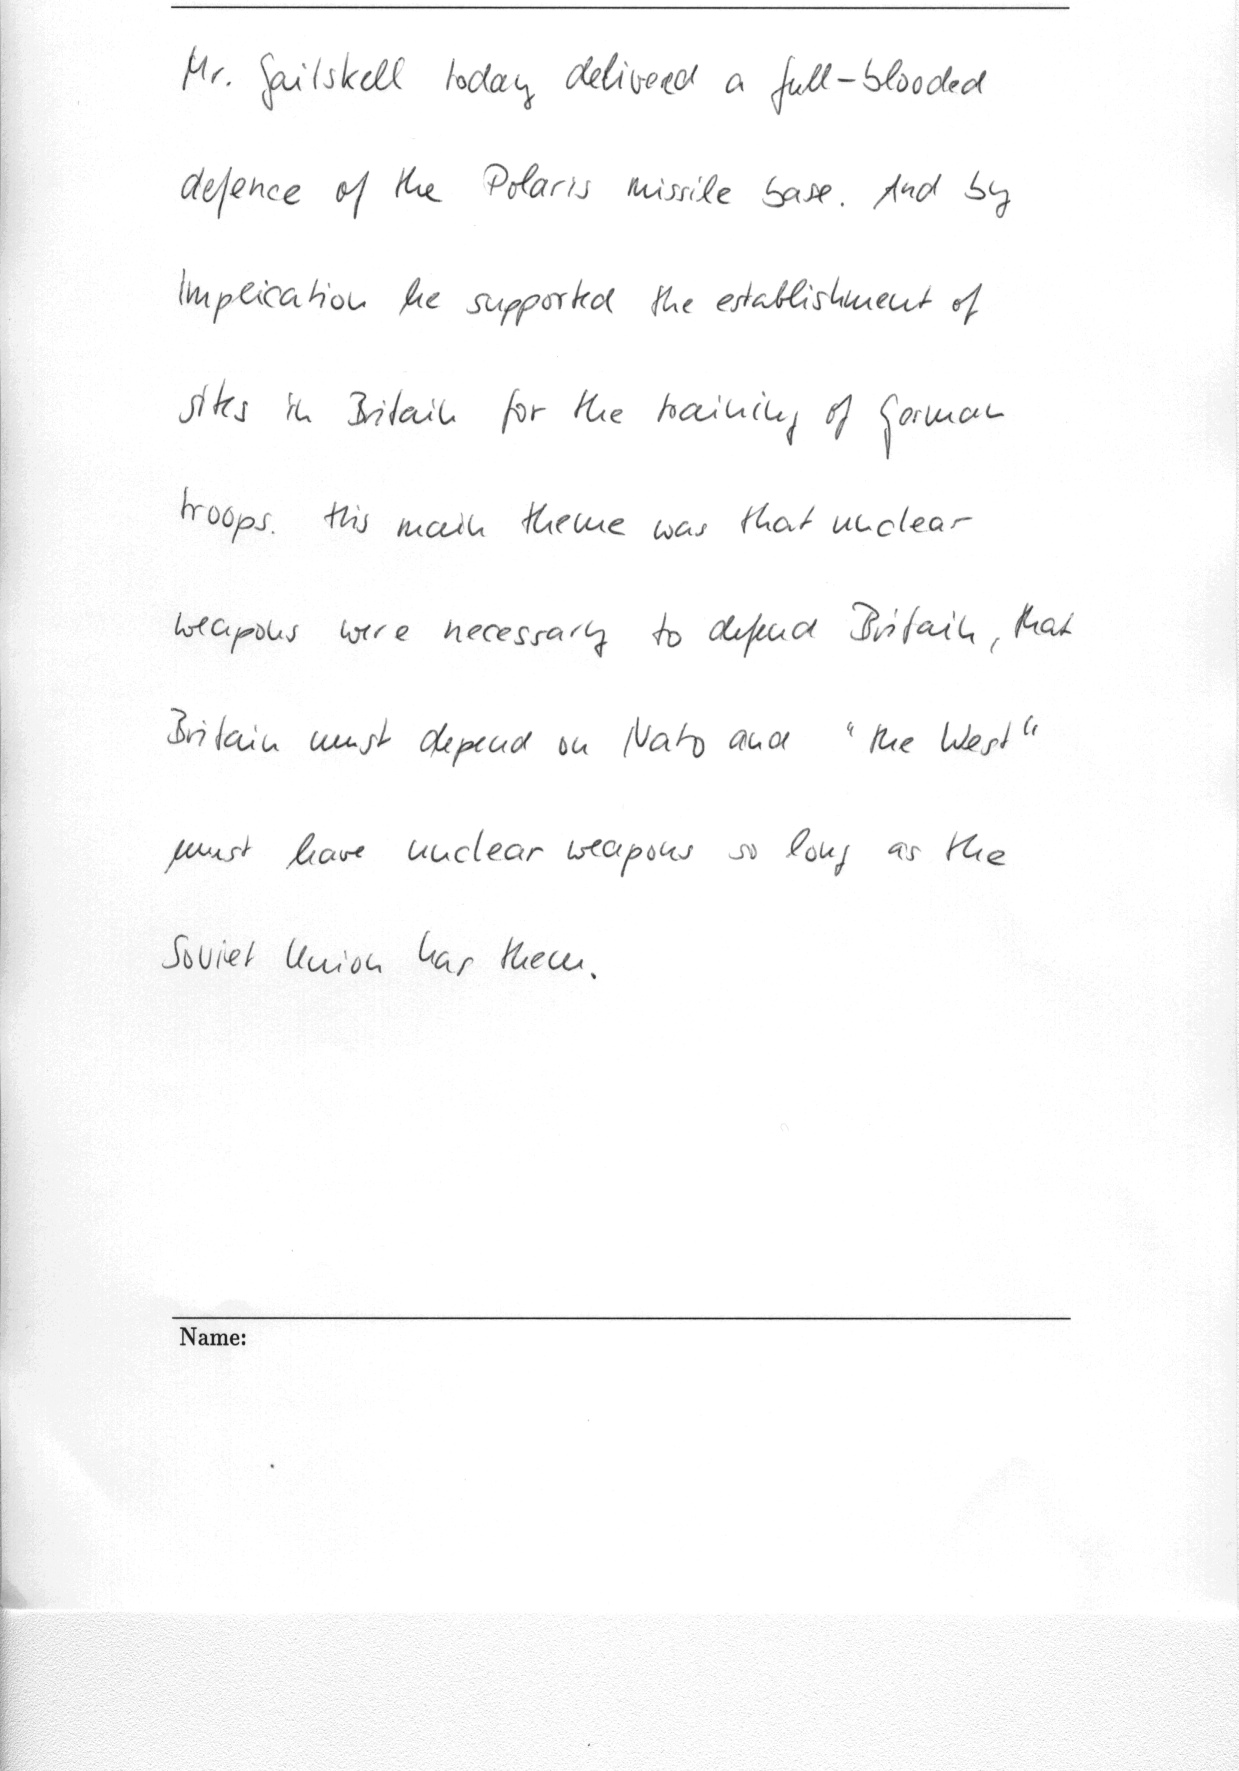 Mr. Gailskell today delivered a full-blooded
defence of the Polaris missile base. And by
implication he supported the establishment of
sites in Britain for the training of German
troops. His main theme was that nuclear
weapons were necessary to defend Britain, that
Britain must depend on Nato and "the West"
must have nuclear weapons so long as the
Soviet Union has them.
Name: